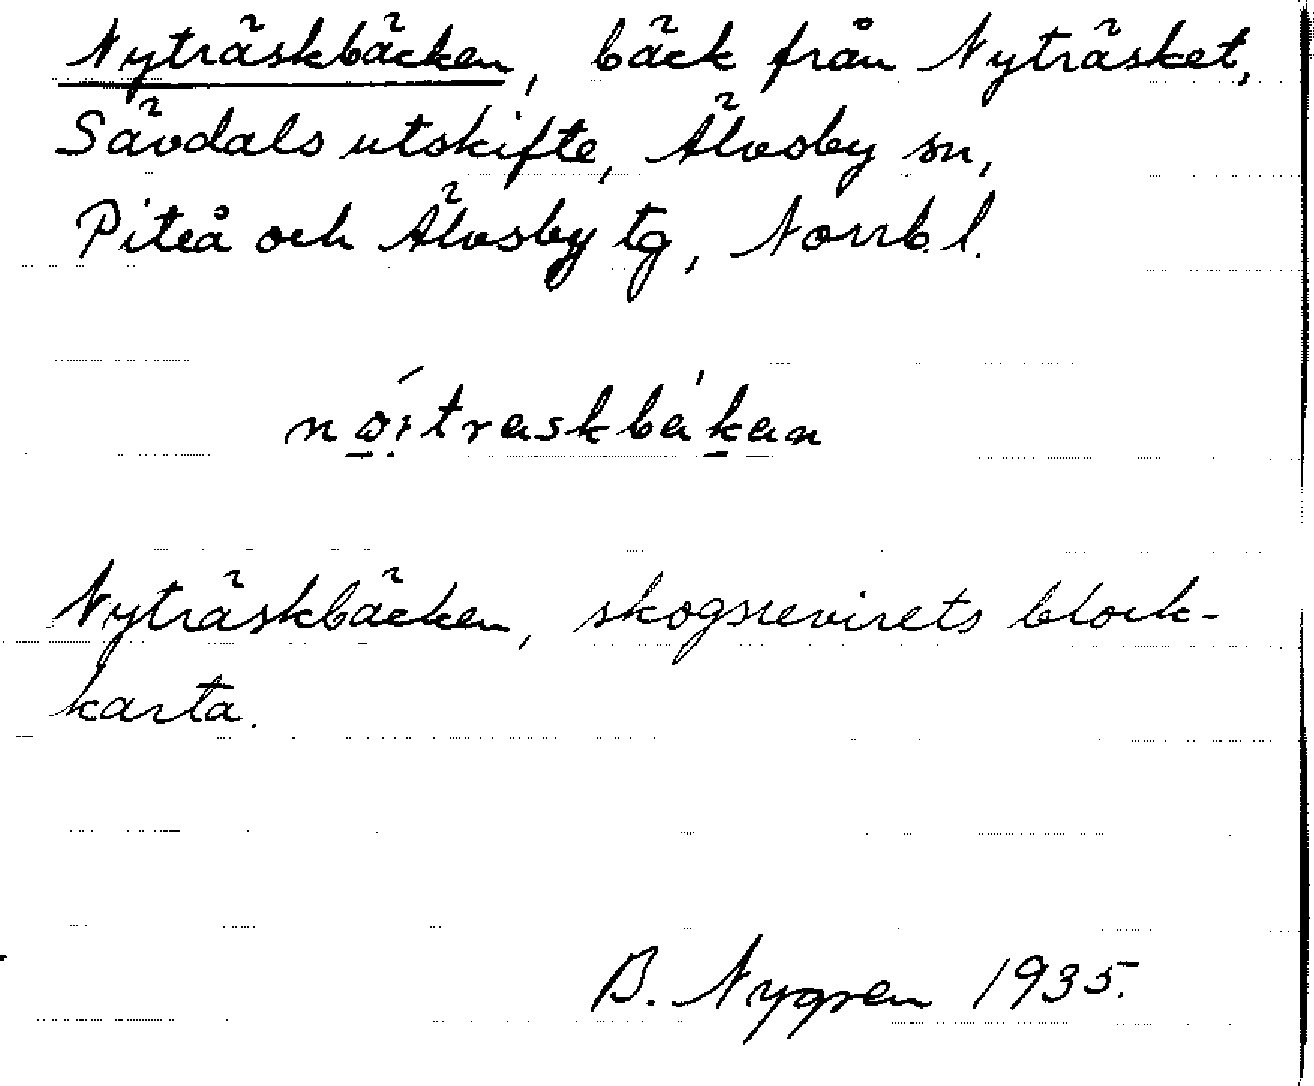 Nyträskbäcken, bäck från Nyträsket,
Sävdals utskifte, Älvsby sn,
Piteå och Älvsby tg, Norrb. l.
nǿi̠traskbá'k̠an
Nyträskbäcken, skogsrevirets block-
karta.
B. Nygren 1935.